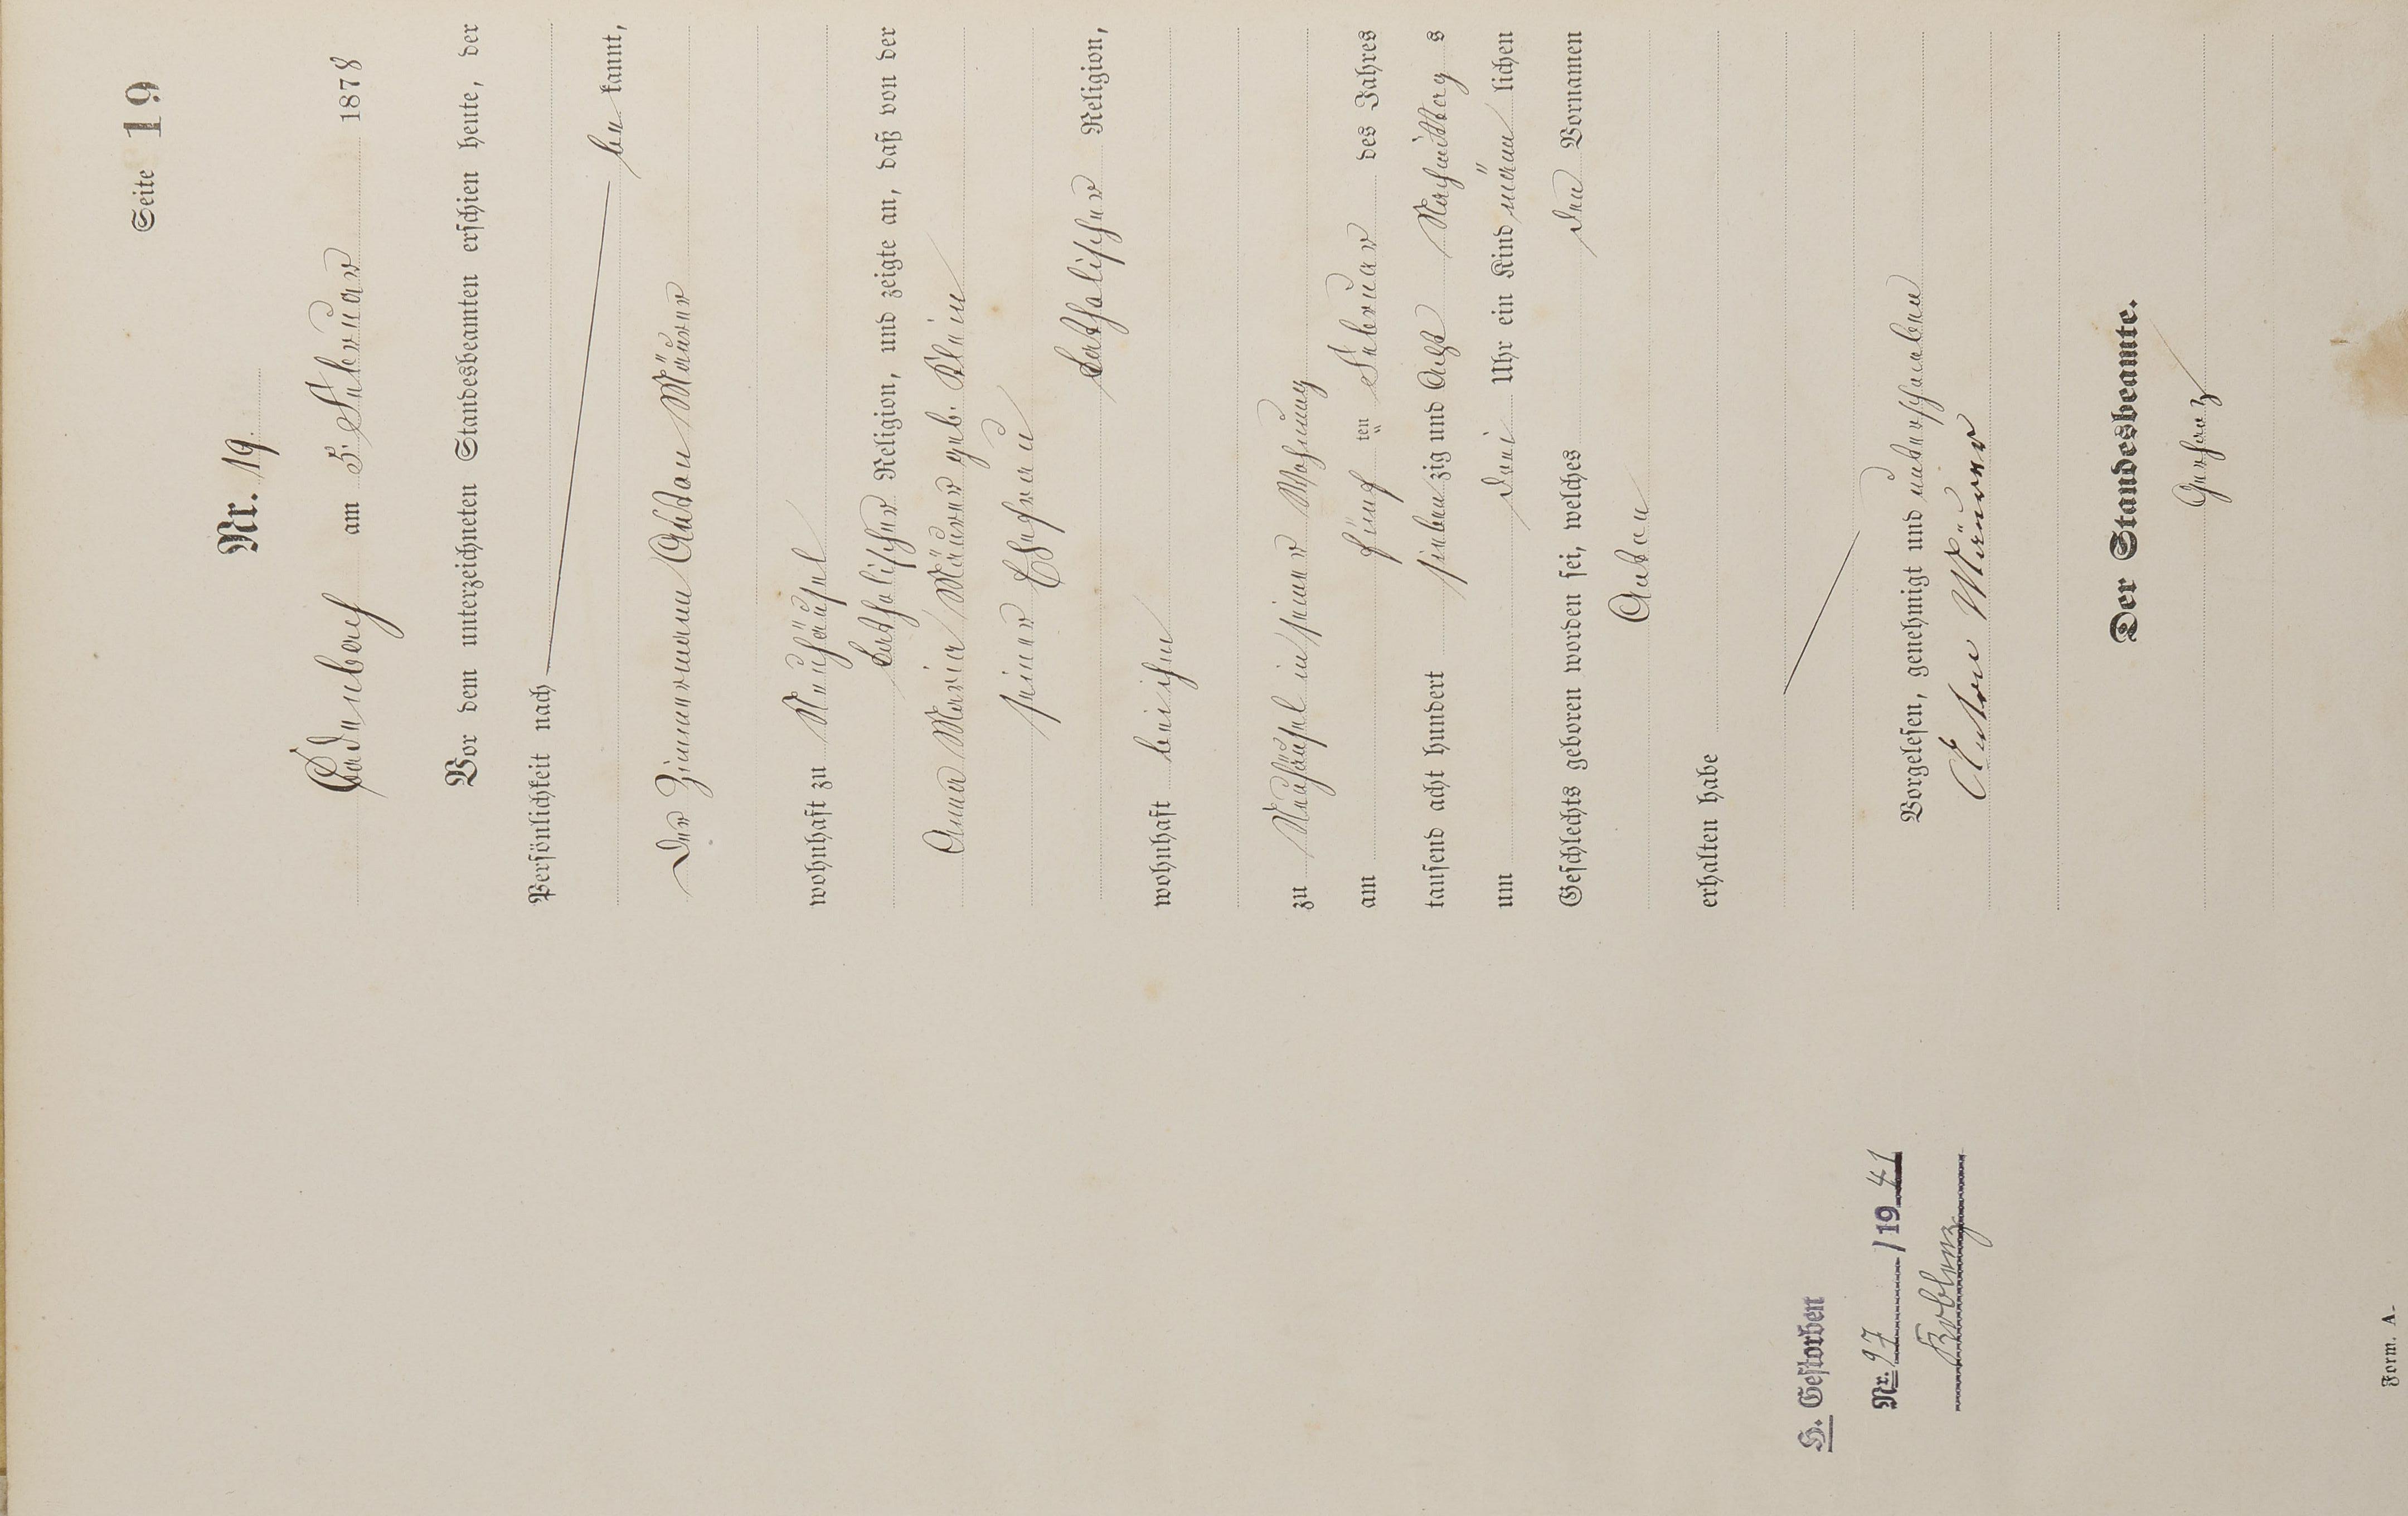 Seite 19
Nr. 19.
Cadenbach am 5. Februar 1878
Vor dem unterzeichneten Standesbeamten erschien heute, der
Persönlichkeit nach
be kannt,
der Zimmermann Anton Mäurer
wohnhaft zu Neuhäusel
katholischer Religion, und zeigte an, daß von der
Anna Maria Mäurer geb. Klein
seiner Ehefrau
katholischer Religion,
wohnhaft bei ihm
zu Neuhäusel in seiner Wohnung
am fünf ten Februar des Jahres
tausend acht hundert sieben zig und acht Nachmittag s
um drei Uhr ein Kind männ lichen
Geschlechts geboren worden sei, welches den Vornamen
Anton
erhalten habe
Vorgelesen, genehmigt und unterschrieben
Anton Mäurer
Der Standesbeamte.
H. Gestorben
Nr. 97 /19 41
Koblenz
Form. A.